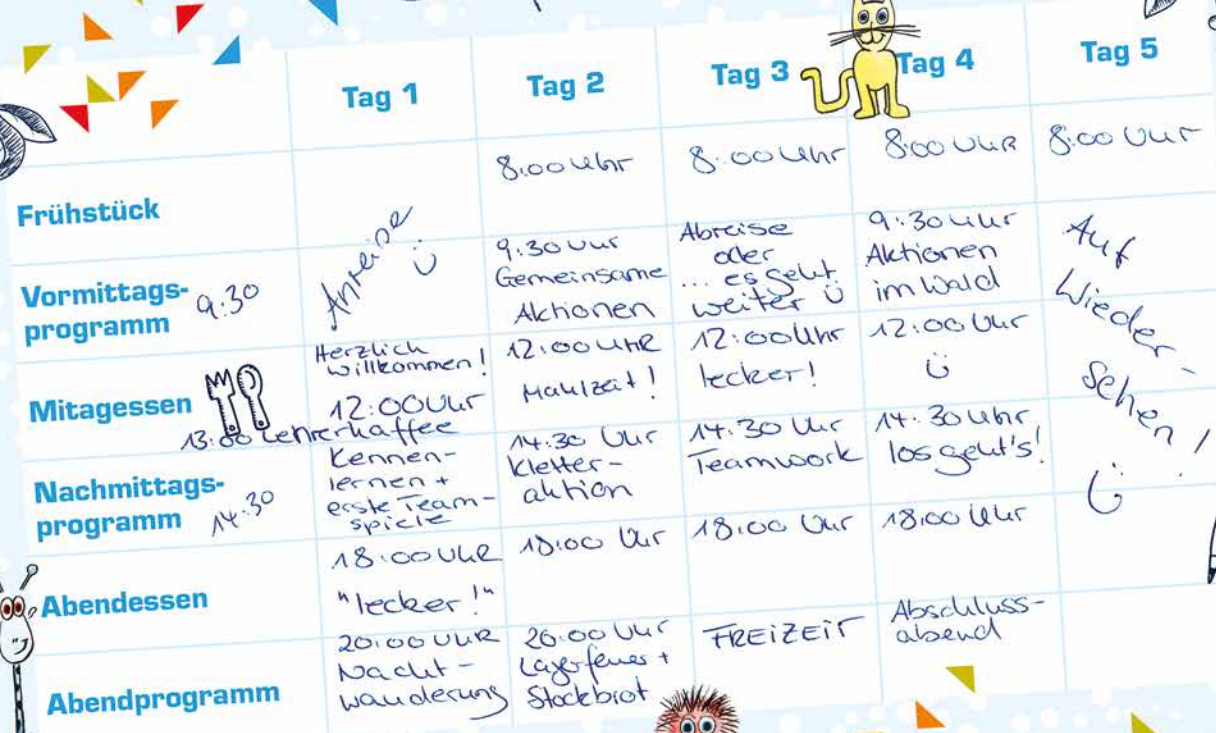 Tag 1 Tag 2 Tag 3 Tag 4 Tag 5
Frühstück
8:00 Uhr
8:00 Uhr
8:00 UHR
8:00 Uhr
Vormittags-
programm 9:30
Anreise
9:30 Uhr
Gemeinsame
Aktionen
Abreise
oder
... es geht
weiter
9:30 Uhr
Aktionen
im Wald
Auf
Wieder-
sehen!
Mitagessen
Herzlich
willkommen!
12:00 Uhr
13:00 Lehrerkaffee
12:00 UHR
Mahlzeit!
12:00 Uhr
lecker!
12:00 Uhr
Nachmittags-
programm 14:30
Kennen-
lernen +
erste Team-
spiele
14:30 Uhr
Kletter-
aktion
14:30 Uhr
Teamwork
14:30 Uhr
los geht's!
Abendessen
18:00 UHR
"lecker!"
18:00 Uhr
18:00 Uhr
18:00 Uhr
Abendprogramm
20:00 UHR
Nacht-
wanderung
20:00 Uhr
Lagerfeuer +
Stockbrot
FREIZEIT
Abschluss-
abend